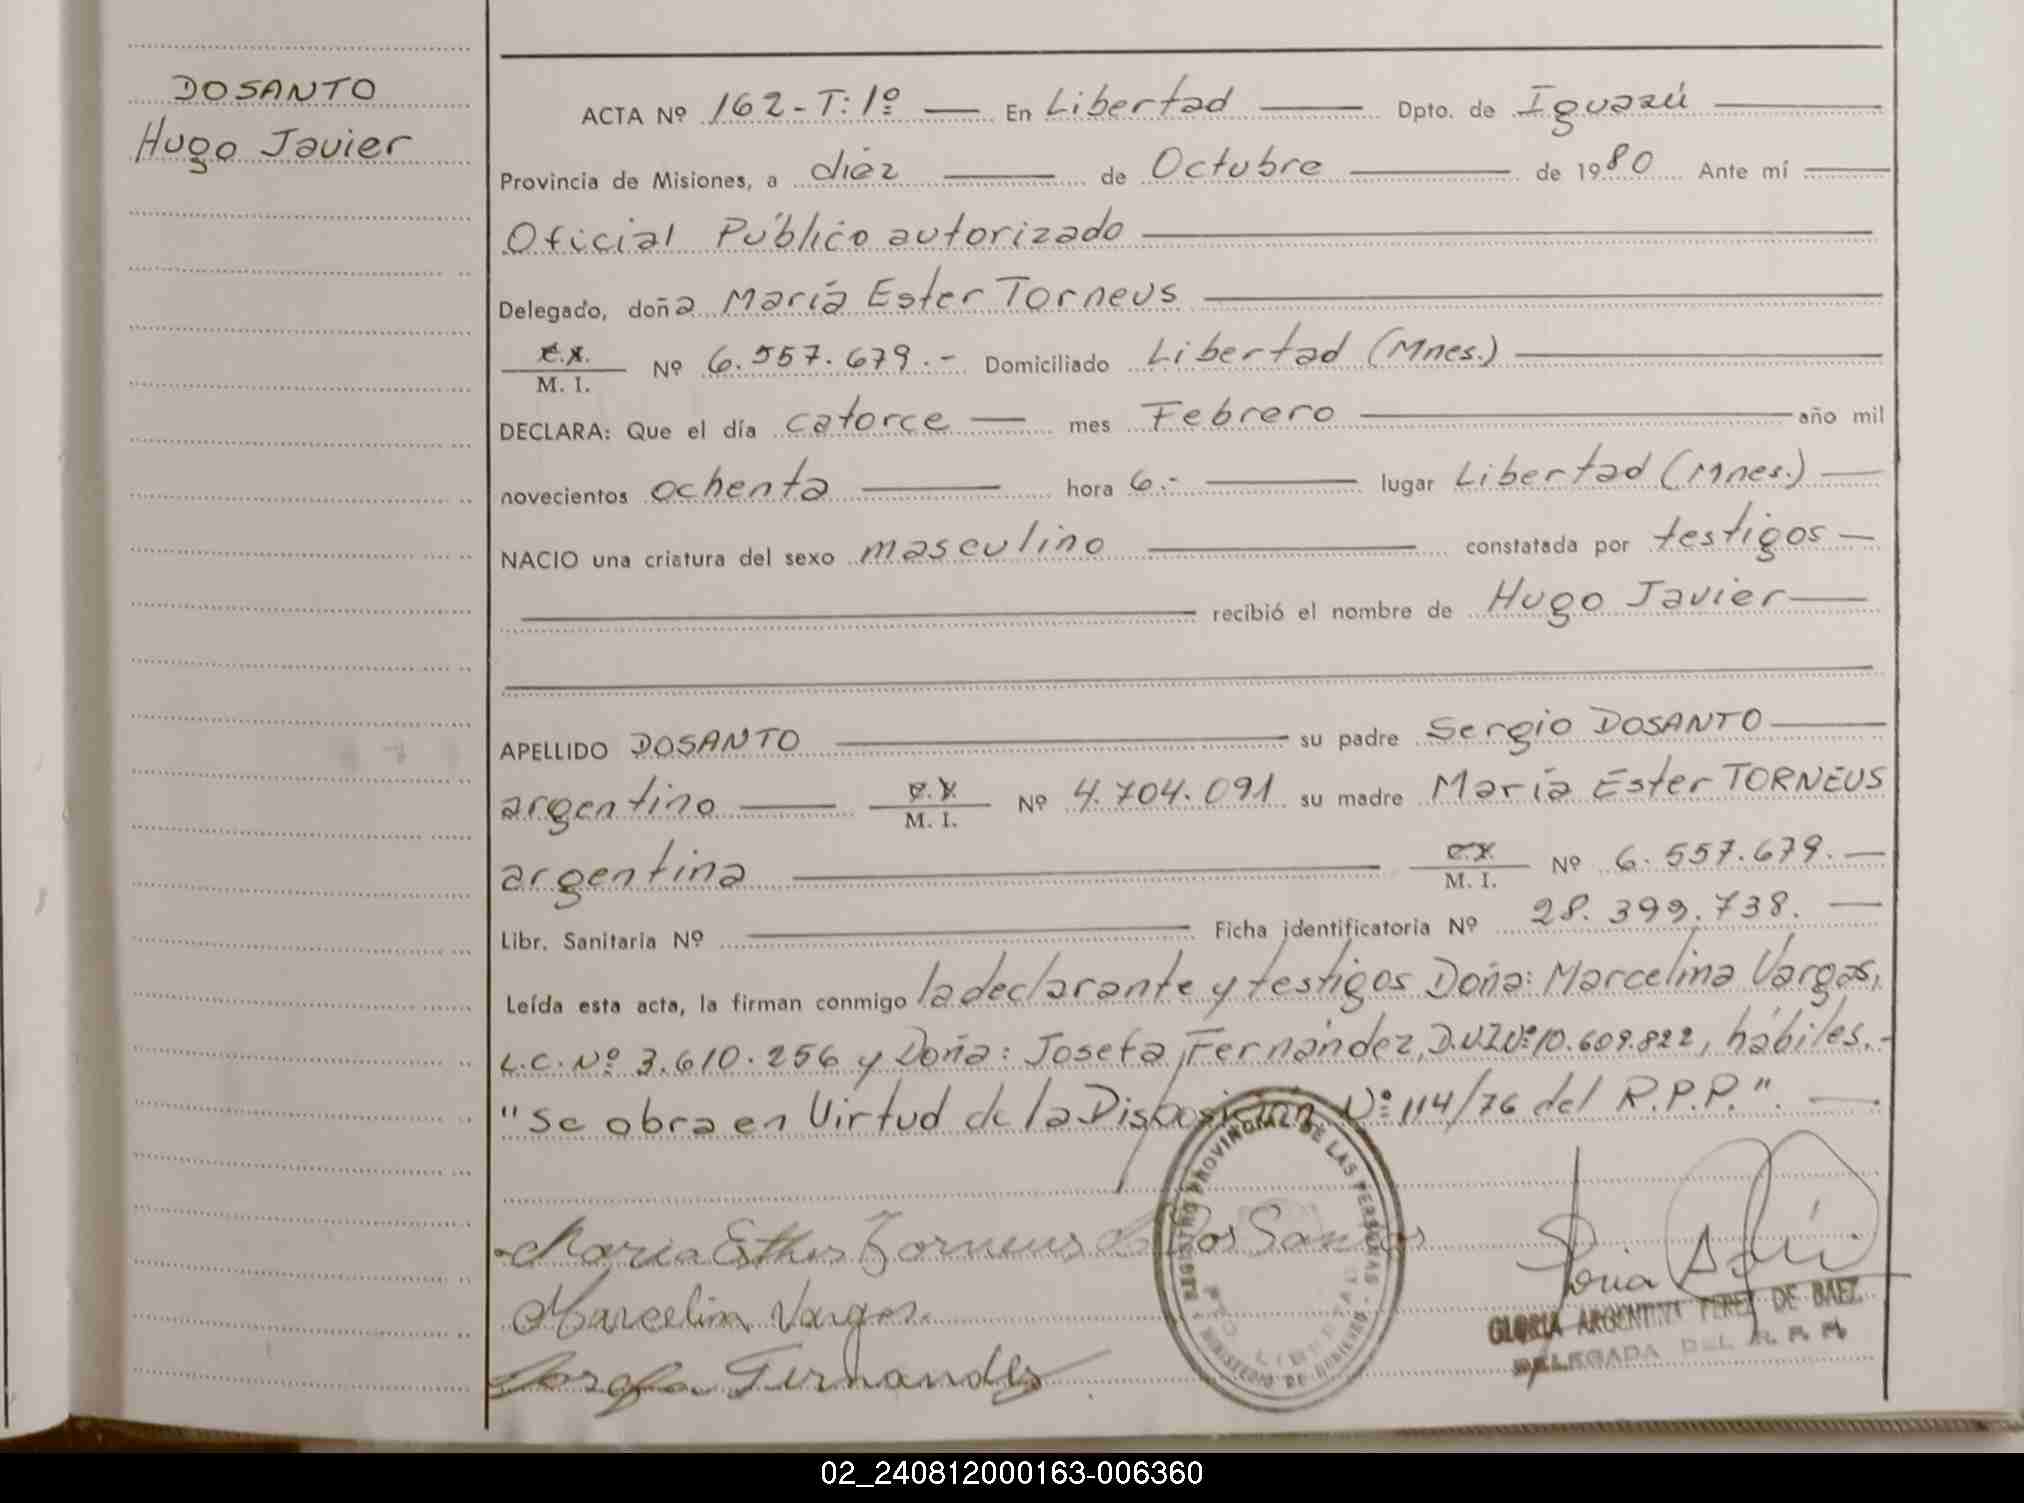 DOSANTO
Hugo Javier
ACTA Nº 162-T:1º — En Libertad — Dpto. de Iguazú —
Provincia de Misiones, a diéz — de Octubre — de 1980 Ante mí —
Oficial Público autorizado —
Delegado, doña María Ester Torneus —
C.I.
M. I. Nº 6.557.679.- Domiciliado Libertad (Mnes.) —
DECLARA: Que el día catorce — mes Febrero — año mil
novecientos ochenta — hora 6.- — lugar Libertad (Mnes.) —
NACIO una criatura del sexo masculino — constatada por testigos —
— recibió el nombre de Hugo Javier —
APELLIDO DOSANTO — su padre Sergio DOSANTO —
argentino — M. I. Nº 4.704.091 su madre María Ester TORNEUS
argentina — M. I. Nº 6.557.679. —
Libr. Sanitaria Nº — Ficha identificatoria Nº 28.399.738. —
Leída esta acta, la firman conmigo la declarante y testigos Doña: Marcelina Vargas,
L.C. Nº 3.610.256 y Doña: Josefa Fernández, D.N.I Nº 10.609.822, hábiles.-
"Se obra en Virtud de la Disposición Nº 114/76 del R.P.P.". —
Maria Esther Torneus de Dos Santos
Marcelina Vargas.
Josefa Fernandez
REGISTRO PROVINCIAL DE LAS PERSONAS
MINISTERIO DE GOBIERNO
LIBERTAD
GLORIA ARGENTINA PEREZ DE BAEZ
DELEGADA DEL R. P. P.
02_240812000163-006360